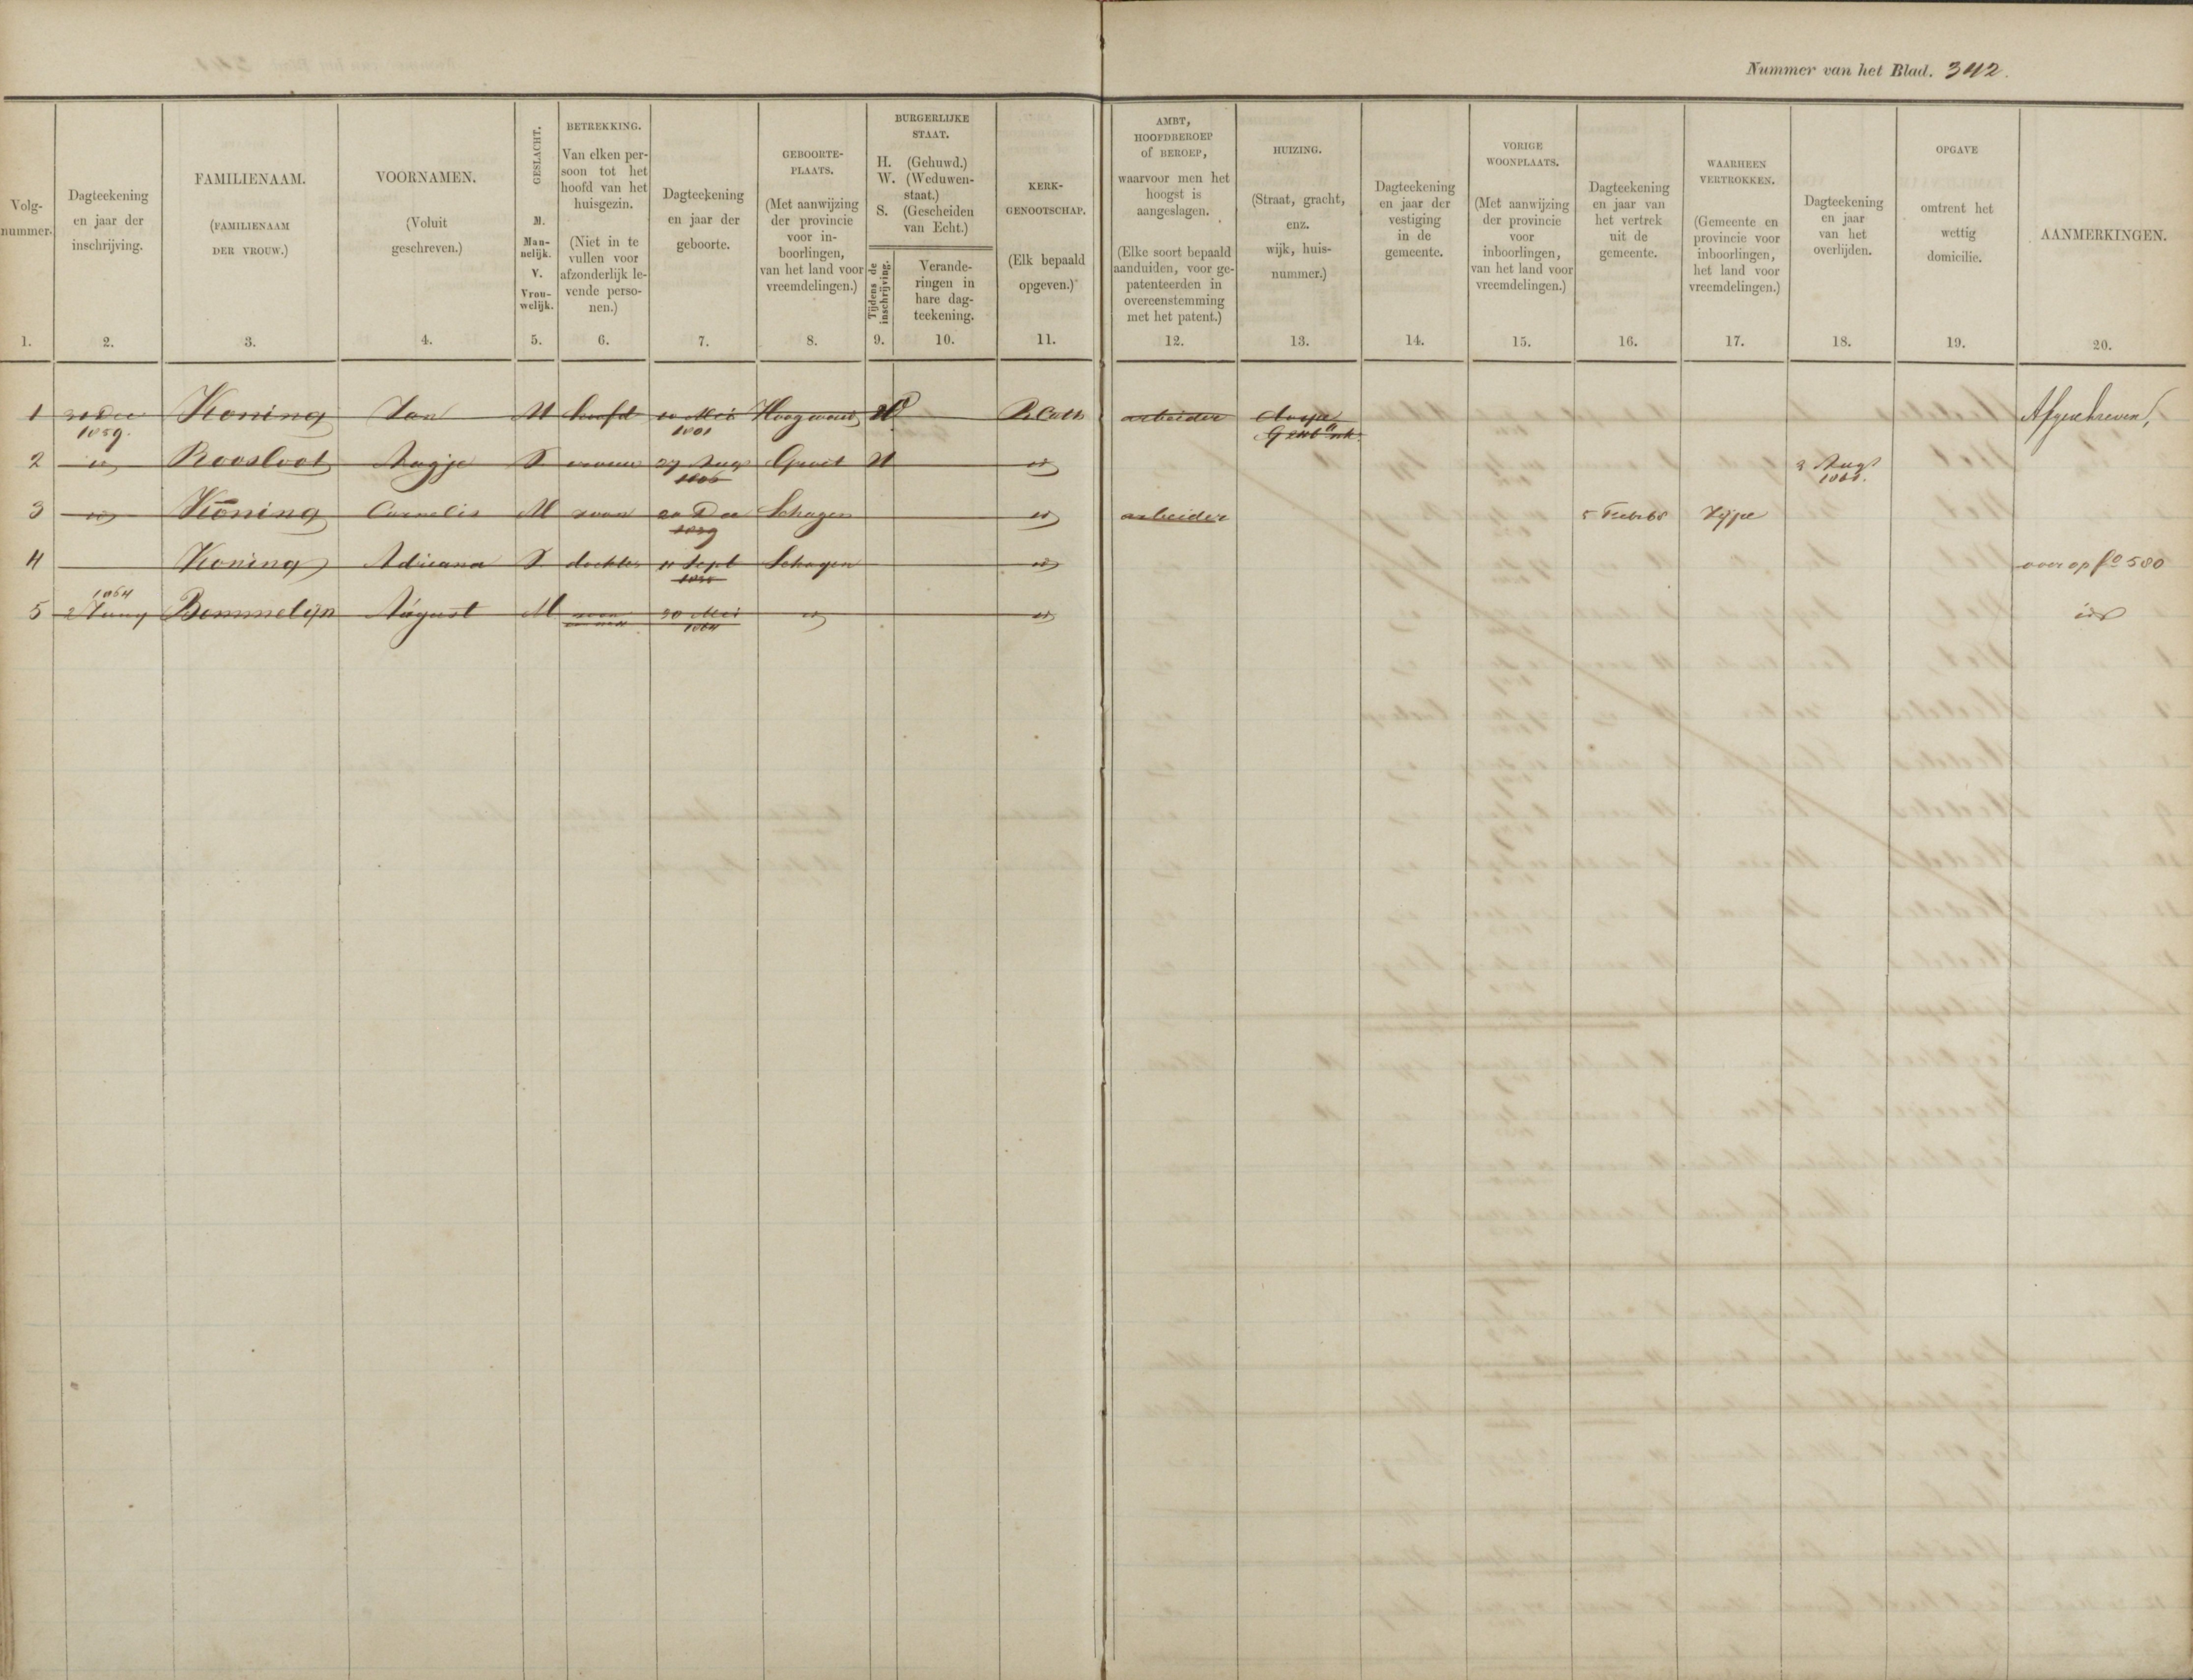 Nummer van het Blad. 342.
Volgnummer.
1.
Dagteekening
en jaar der
inschrijving.
2.
FAMILIENAAM.
(FAMILIENAAM
DER VROUW.)
3.
VOORNAMEN.
(Voluit
geschreven.)
4.
GESLACHT.
M.
Man-
nelijk.
V.
Vrou-
welijk.
5.
BETREKKING.
Van elken per-
soon tot het
hoofd van het
huisgezin.
(Niet in te
vullen voor
afzonderlijk le-
vende perso-
nen.)
6.
Dagteekening
en jaar der
geboorte.
7.
GEBOORTE-
PLAATS.
(Met aanwijzing
der provincie
voor in-
boorlingen,
van het land voor
vreemdelingen.)
8.
BURGERLIJKE
STAAT.
H. (Gehuwd.)
W. (Weduwen-
staat.)
S. (Gescheiden
van Echt.)
Tijdens de
inschrijving.
9.
Verande-
ringen in
hare dag-
teekening.
10.
KERK-
GENOOTSCHAP.
(Elk bepaald
opgeven.)
11.
AMBT,
HOOFDBEROEP
of BEROEP,
waarvoor men het
hoogst is
aangeslagen.
(Elke soort bepaald
aanduiden, voor ge-
patenteerden in
overeenstemming
met het patent.)
12.
HUIZING.
(Straat, gracht,
enz.
wijk, huis-
nummer.)
13.
Dagteekening
en jaar der
vestiging
in de
gemeente.
14.
VORIGE
WOONPLAATS.
(Met aanwijzing
der provincie
voor
inboorlingen,
van het land voor
vreemdelingen.)
15.
Dagteekening
en jaar van
het vertrek
uit de
gemeente.
16.
WAARHEEN
VERTROKKEN.
(Gemeente en
provincie voor
inboorlingen,
het land voor
vreemdelingen.)
17.
Dagteekening
en jaar
van het
overlijden.
18.
OPGAVE
omtrent het
wettig
domicilie.
19.
AANMERKINGEN.
20.
1 31 Dec 1859. Koning Jan M hoofd 10 Mei 1801 Hoogwoud H R Cath arbeider dorpe Afgeschreven,
2 id Roosloot Aagje V vrouw 27 Aug Groet H id 3 Aug 1860.
3 id Koning Cornelis M zoon 20 Dec 1839 Schagen id arbeider 5 Febr 60 Zijpe
4 Koning Adriana V dochter 11 Sept Schagen id over op fo 580
5 1864 2 Juny Bommelijn August M zoon 30 Mei 1864 id id id